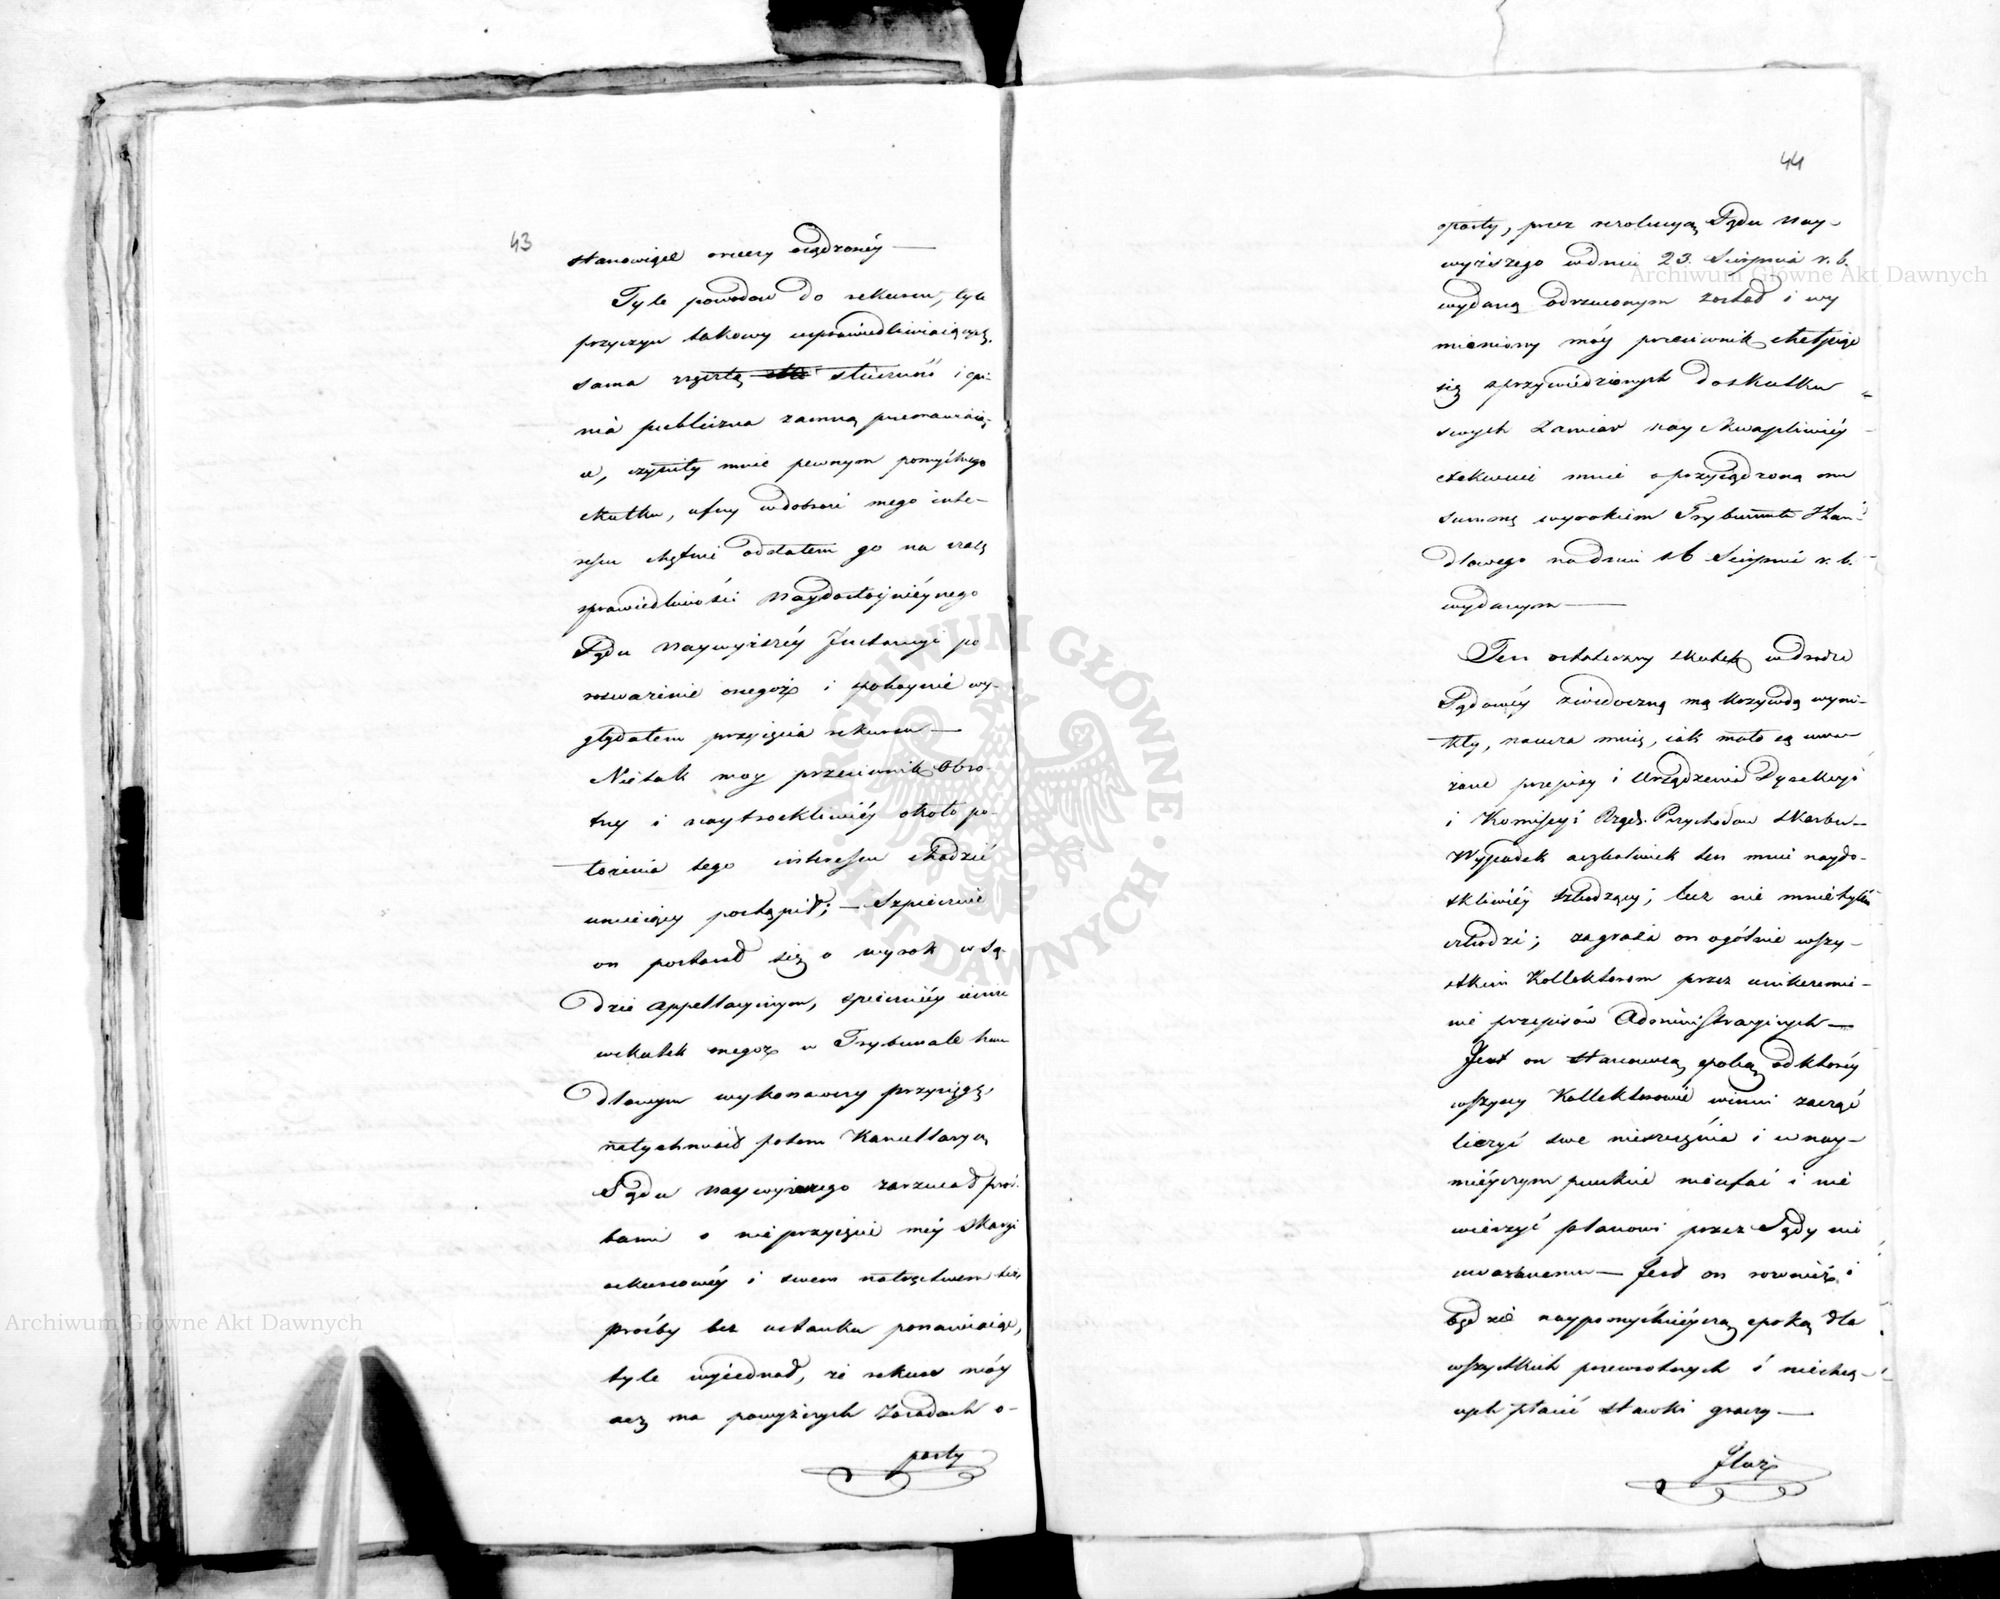 43
stanowiące rzeczy osądzonéy —
Tyle powodów do rekursu, tyle
przyczyn takowy usprawiedliwiaiących,
sama słuszność i opi-
nia publiczna zamną przemawiaią-
ce, czyniły mnie pewnym pomyślnego
skutku, ufny wdobroci mego inte-
resu chętnie oddałem go na
sprawiedliwości Naydostoynieyszego
Sądu Naywyższéy Instancyi po
rozważenie onegoż i spokoynie wy-
glądałem przyięcia rekursu —
Nietak moy przeciwnik Obro-
tny i naytroskliwiéy około po-
łożenia tego interessu chodzić
umieiący postąpił; — Szpiesznie
on postarał się o wyrok w Są-
dzie Appellacyinym, spieszniéy ieszcze
wskutek onegoż w Trybunale han
dlowym wykonawczy przysięgę,
natychmiast potem Kancellaryą
Sądu Naywyższego zarzucał proś-
bami o nieprzyięcie méy skargi
rekursowéy i swem natręctwem też
prośby bez ustanku ponawiaiąc,
tyle wyiednał, że rekurs móy
acz na powyższych zasadach o-
party
44
oparty, przez rezolucyą Sądu Nay-
wyższego wdniu 23. Sierpnia r. b.
wydaną odrzuconym został i wy
mieniony móy przeciwnik chełpiąc
się zprzywiedzionych doskutku
swych zamiar nay skwapliwiéy
exekwuie mnie oprzysądzoną mu
summę wyrokiem Trybunału Han-
dlowego nadniu 16 Sierpnia r. b.
wydanym —
Ten ostateczny skutek wdrodze
Sądowéy zwidoczną mą krzywdą wyni-
kły, naucza mnię, iak mało są uwa-
żane przepisy i Urządzenia Dyrekcyi
i Kommissyi Rząd. Przychodów Skarbu —
Wypadek aczkolwiek ten mnie naydo-
tkliwiéy szkodzący; lecz nie mnie tylko
szkodzi; zagraża on ogólnie wszy-
stkim Kollektorom przez
nie przepisów Administracyinych —
Jest on stanowczą epoką odktoréy
wszyscy Kollektorowie winni zacząć
liczyć swe nieszczęścia i w nay-
mnieyszym punkcie nieufać i nie
wierzyć planowi przez Sądy nie
uważanemu — Jest on rownież i
będzie naypomyślnieyszą epoką dla
wszystkich przewrotnych i niechcą-
cych płacić stawki graczy —
Iluż
Archiwum Główne Akt Dawnych
Archiwum Główne Akt Dawnych
ARCHIWUM GŁÓWNE AKT DAWNYCH